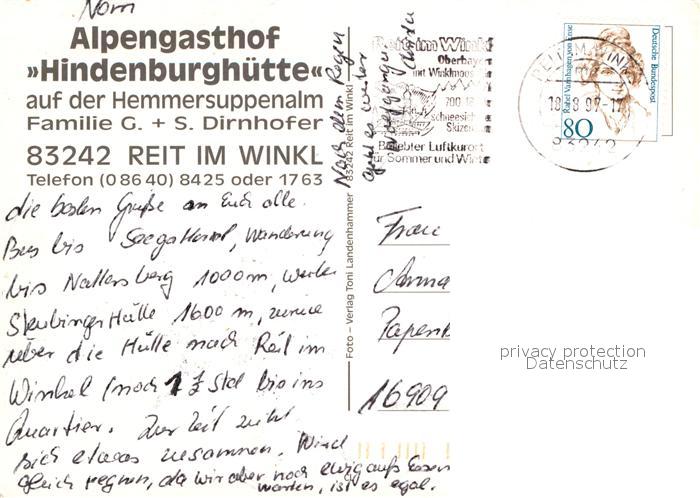 Vom
Alpengasthof
»Hindenburghütte«
auf der Hemmersuppenalm
Familie G. + S. Dirnhofer
83242 REIT IM WINKL
Telefon (0 86 40) 8425 oder 17 63
die besten Grüße an Euch alle.
Bus bis Seegatterl, Wanderung
bis Nattersberg 1000m, weiter
Hütte 1600 m, zurück
über die Hütte nach Reit im
Winkel (noch 1 Std bis ins
Quartier. Zur Zeit zieht
sich etwas zusammen. Wird
gleich regnen, da wir aber noch ewig aufs Essen
warten, ist es egal.
Nach dem Regen
geht es weiter
Foto – Verlag Toni Landenhammer · 83242 Reit im Winkl
Reit im Winkl
Oberbayern
mit Winklmoos
700
schneesich
Beliebter Luftkurort
für Sommer und Winter
18.8.97
83242
Deutsche Bundespost
Rahel Varnhagen von Ense
80
Frau
Anna
Papenk
16909
privacy protection
Datenschutz